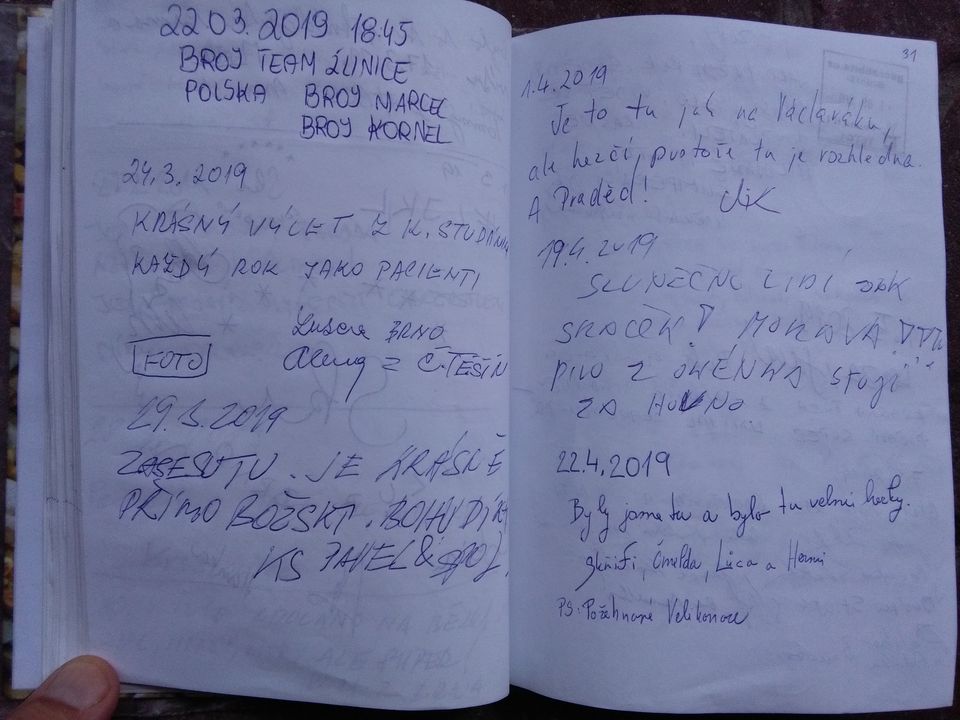 22 03. 2019 18:45
BROJ TEAM
POLSKA BROJ MARCEL
BROJ KORNEL
24.3. 2019
KRÁSNÝ VÝLET Z K. STUDÁNKY
KAŽDÝ ROK JAKO PACIENTI
BRNO
FOTO
z Č. TĚŠÍN
29.3.2019
JE KRÁSNĚ
PŘÍMO BOŽSKÝ. BOHU DÍKY
PAVEL & spol.
31
1.4.2019
Je to tu jak na Václaváku,
ale hezčí, protože tu je rozhledna.
A Praděd!
19.4.2019
SLUNEČNO LIDÍ JAK
SRAČEK! MORAVA!!!
PIVO Z STOJÍ
ZA HOVNO
22.4.2019
Byly jsme tu a bylo tu velmi hezky.
Skřiti, Órnelda, Lůca a
PS: Požehnané Velikonoce